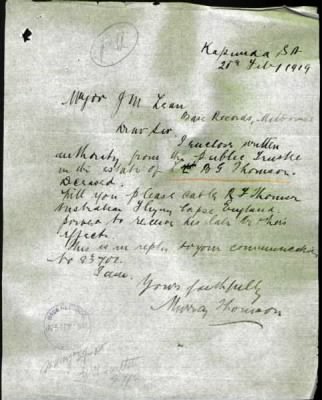 Kapunda SA
21st Feb/1919
Major J M Lean
Base Records, Melbourne
Dear Sir,
I enclose written
authority from the Public Trustee
in the estate of B G Thomson.
Deceased.
Will you please cable R F Thomson
Australian Flying Corps, England
to receive his late
effects
This is in reply to your communication
No 23700.
I am.
Yours faithfully
Murray Thomson